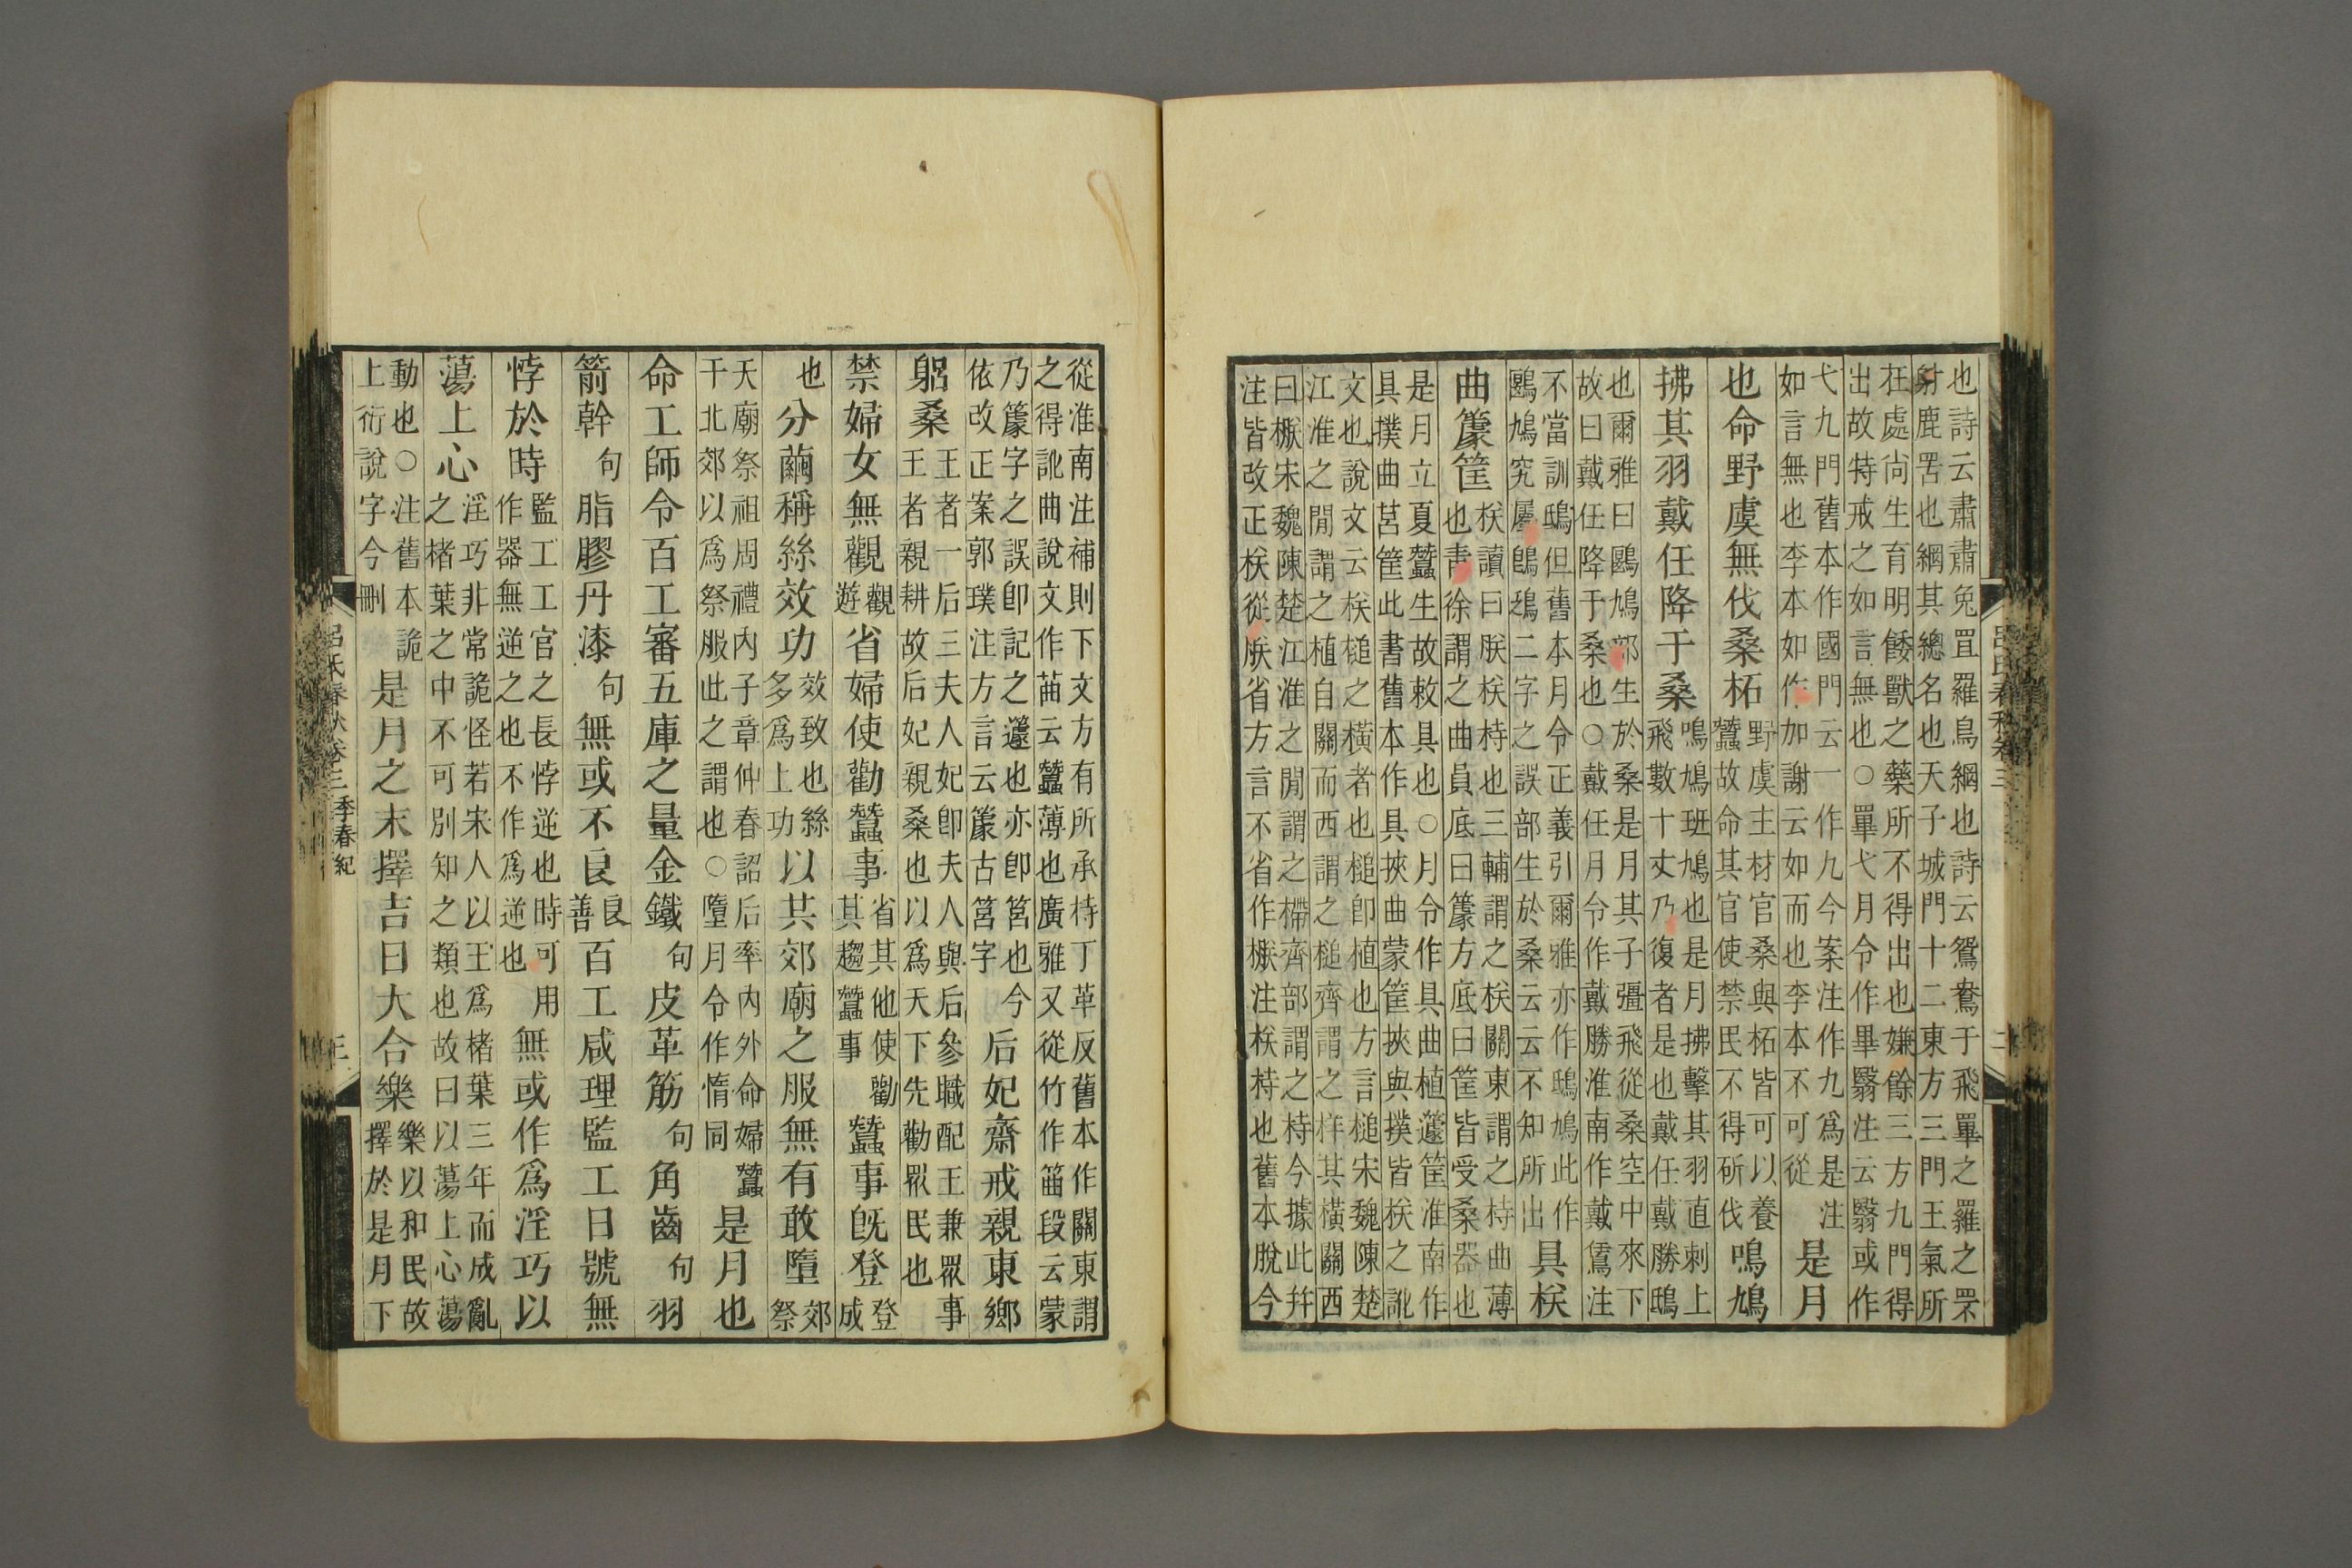 也詩云肅肅兔罝羅鳥網也詩云鴛鴦于飛畢之羅之罘
射鹿罟也網其總名也天子城門十二東方三門王氣所
在處尚生育明餧獸之藥所不得出也嫌餘三方九門得
出故特戒之如言無也○罼弋月令作畢翳注云翳或作
弋九門舊本作國門云一作九今案注作九爲是注
如言無也李本如作加謝云如而也李本不可從
是月
也命野虞無伐桑柘
野虞主材官桑與柘皆可以養
蠶故命其官使禁民不得斫伐
鳴鳩
拂其羽戴任降于桑
鳴鳩班鳩也是月拂擊其羽直刺上
飛數十丈乃復者是也戴任戴勝鴟
也爾雅曰鷗鳩部生於桑是月其子彊飛從桑空中來下
故曰戴任降于桑也○戴任月令作戴勝淮南作戴鵀注
不當訓鴟但舊本月令正義引爾雅亦作鴟鳩此作
鷗鳩究屬二字之誤部生於桑云云不知所出
具栚
曲𥴧筐
栚讀曰朕栚㭙也三輔謂之栚關東謂之㭙曲薄
也青徐謂之曲員底曰𥴧方底曰筐皆受桑器也
是月立夏蠶生故敕具也○月令作具曲植籧筐淮南作
具撲曲筥筐此書舊本作具挾曲蒙筐挾與撲皆栚之訛
文也說文云栚槌之橫者也槌卽植也方言槌宋魏陳楚
江淮之閒謂之植自關而西謂之槌齊謂之样其橫關西
曰㯕宋魏陳楚江淮之閒謂之㯂齊部謂之㭙今據此幷
注皆改正栚從朕省方言不省作㯕注栚㭙也舊本脫今
呂氏春秋卷三
二
從淮南注補則下文方有所承㭙丁革反舊本作關東謂
之得訛曲說文作䒼云蠶薄也廣雅又從竹作𥬔段云蒙
乃𥴧字之誤卽記之籧也亦卽筥也今
依改正案郭璞注方言云𥴧古筥字
后妃齋戒親東鄉
躳桑
王者一后三夫人妃卽夫人與后參職配王兼眾事
王者親耕故后妃親桑也以爲天下先勸眾民也
禁婦女無觀
觀
遊
省婦使勸蠶事
省其他使勸
其趨蠶事
蠶事旣登
登
成
也
分繭稱絲效功
效致也絲
多爲上功
以共郊廟之服無有敢墮
郊
祭
天廟祭祖周禮內子章仲春詔后率內外命婦蠶
于北郊以爲祭服此之謂也○墮月令作惰同
是月也
命工師令百工審五庫之量金鐵句皮革筋句角齒句羽
箭幹句脂膠丹漆句無或不良
良
善
百工咸理監工日號無
悖於時
監工工官之長悖逆也時可用
作器無逆之也不作爲逆也
無或作爲淫巧以
蕩上心
淫巧非常詭怪若宋人以玉爲楮葉三年而成亂
之楮葉之中不可別知之類也故曰以蕩上心蕩
動也○注舊本詭
上衍說字今刪
是月之末擇吉日大合樂
樂以和民故
擇於是月下
呂氏春秋卷三 季春紀
三